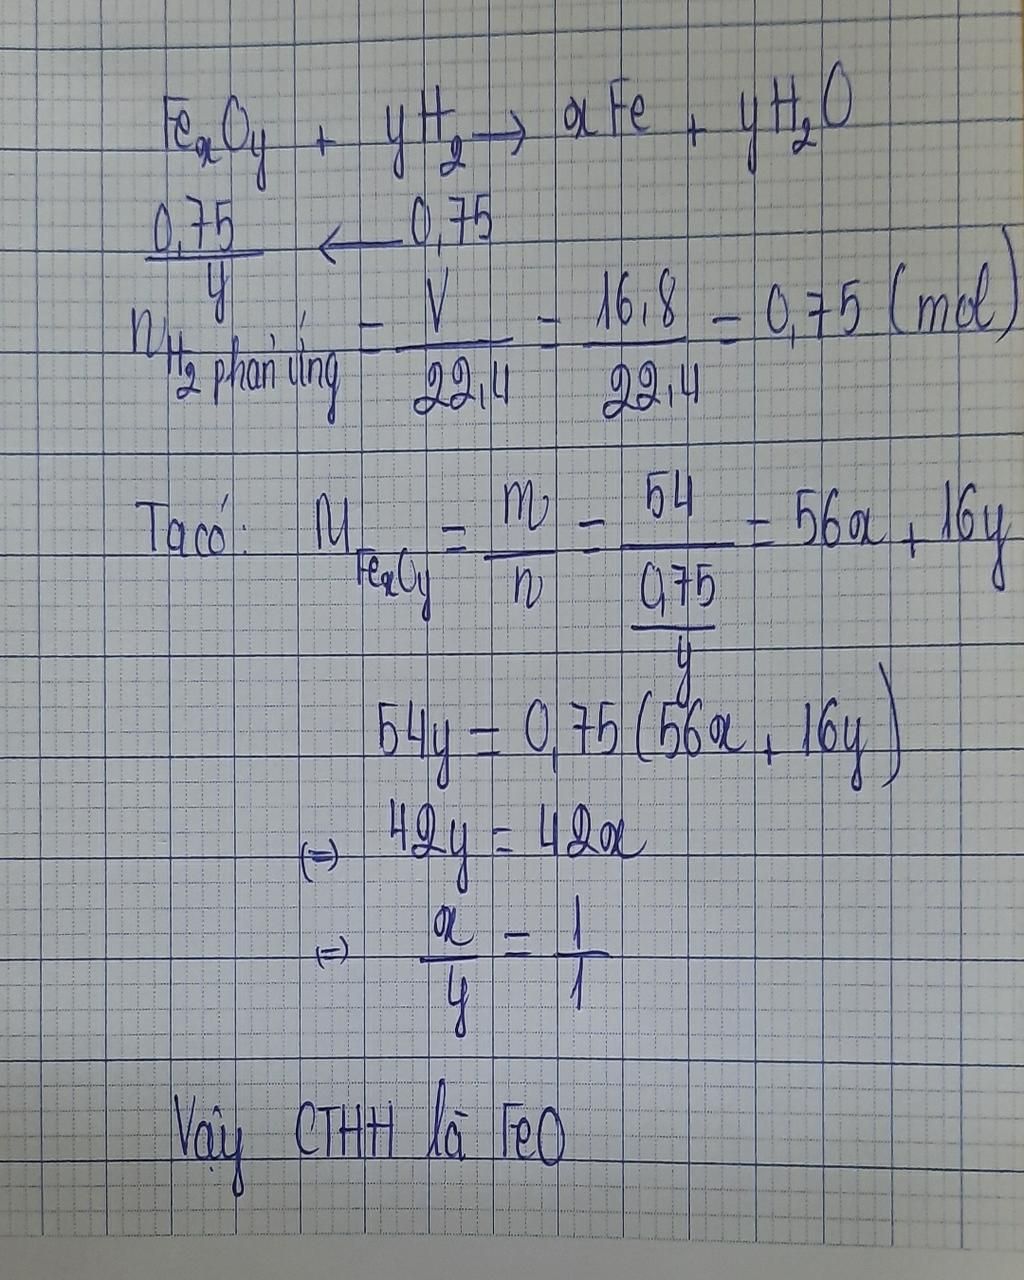 FexOy + yH2 → xFe + yH2O
0,75/y ← 0,75
nH2 phản ứng = V/22,4 = 16,8/22,4 = 0,75 (mol)
Ta có: MFexOy = m/n = 54/(0,75/y) = 56x + 16y
54y = 0,75(56x + 16y)
(=) 42y = 42x
(=) x/y = 1/1
Vậy CTHH là FeO